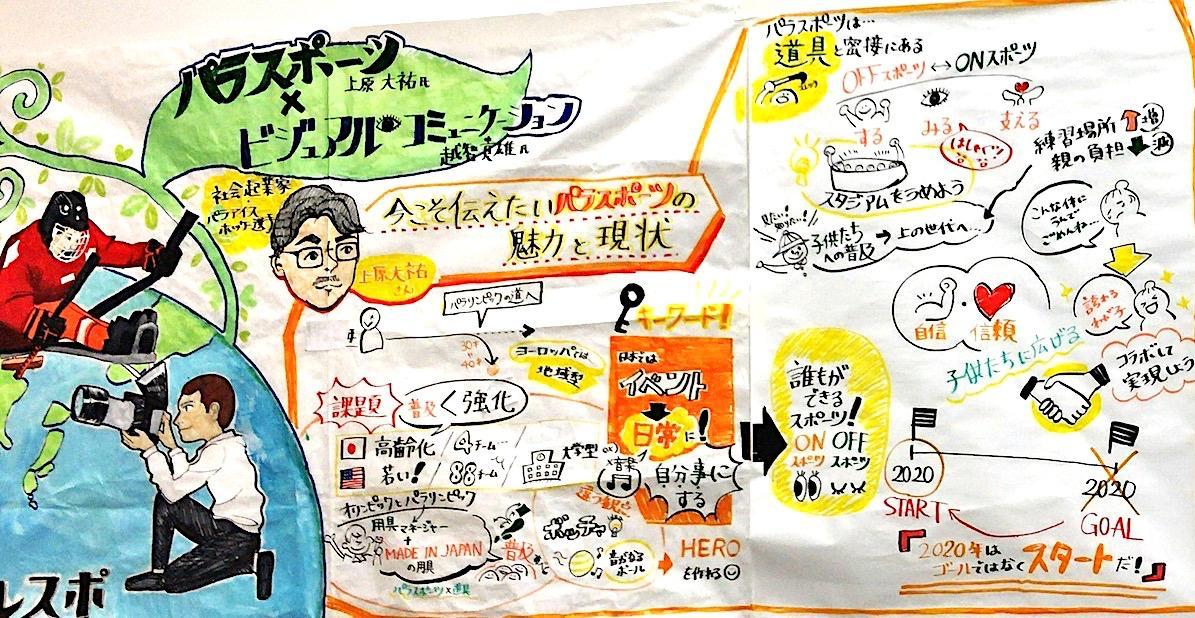 パラスポーツ
上原 大祐氏
×
ビジュアル・コミュニケーション
越智 英雄氏
社会起業家
パラアイス
ホッケー選手
今こそ伝えたいパラスポーツの
魅力と現状
上原大祐
さん
パラリンピックの道へ
30才
40才
ヨーロッパでは
地域型
課題
普及 < 強化
高齢化 / チーム…
若い! / 88チーム
大学型
オリンピックとパラリンピック
用具マネージャー
+
MADE IN JAPAN
の用具
パラスポーツ×道具
普及
ボッチャ
×音楽
音がなる
ボール
HERO
を作れる
キーワード!
日本では
イベント
日常に!
自分事に
する
パラスポーツは…
道具と密接にある
OFFスポーツ ↔ ONスポーツ
する
みる
支える
はしゃぐ
スタジアムをうめよう
練習場所 増
親の負担 減
見たい!
知りたい!
子供たち → 上の世代へ…
への普及
こんな体に
うんで
ごめんね…
誇れる
わが子
自信
信頼
子供たちに広げる
コラボして
実現しよう
誰もが
できる
スポーツ!
ON OFF
スポーツ スポーツ
2020
2020
START
GOAL
『2020年は
ゴールではなくスタートだ!』
ルスポ